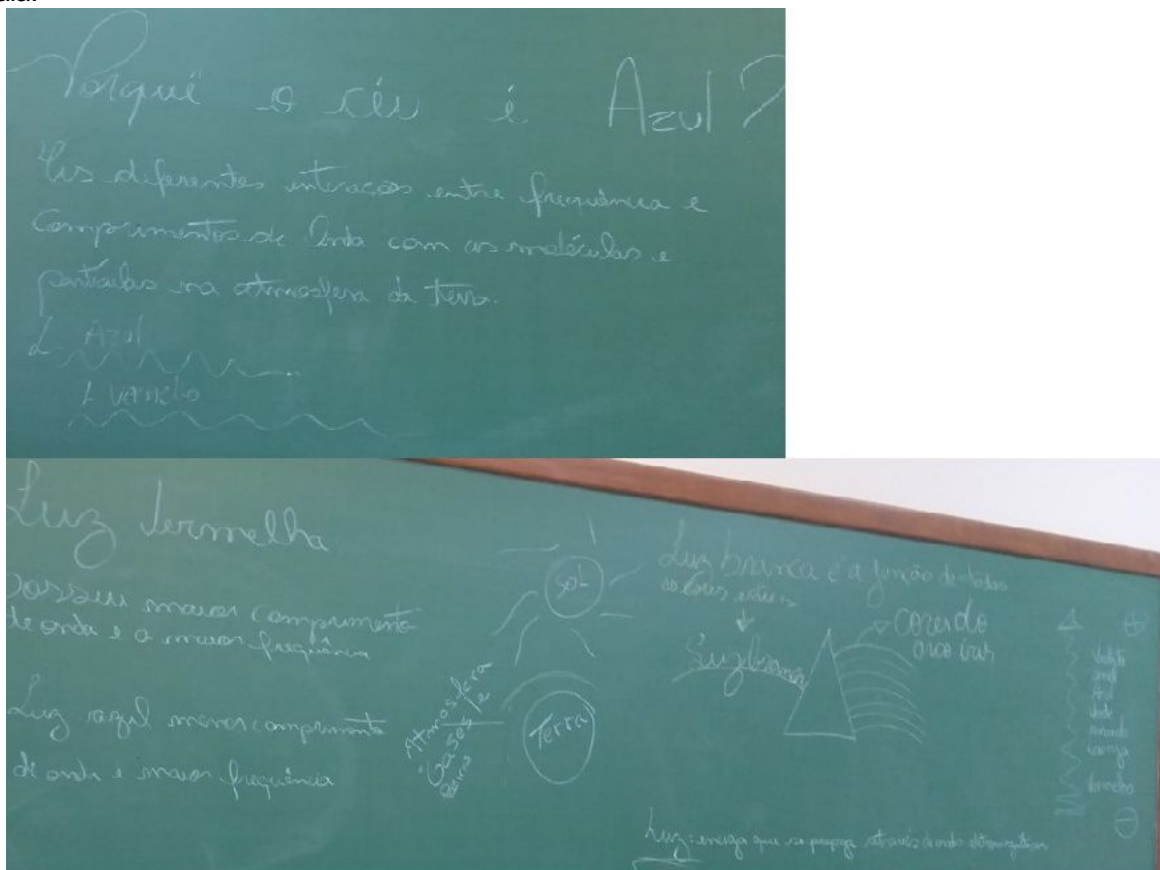 Porquê o céu é Azul?
As diferentes interações entre frequência e
Comprimentos de Onda com as moléculas e
partículas na atmosfera da terra.
L Azul
L vermelho
Luz Vermelha
Possui maior comprimento
de onda e a maior frequência
Luz azul menor comprimento
de onda e maior frequência
Sol
Atmosfera
Gases e
Terra
Luz branca é a junção de todas
as cores
Luz branca
cores do
arco iris
+
violeta
anil
Azul
verde
amarelo
laranja
vermelho
-
Luz: energia que se propaga através de ondas eletromagnéticas